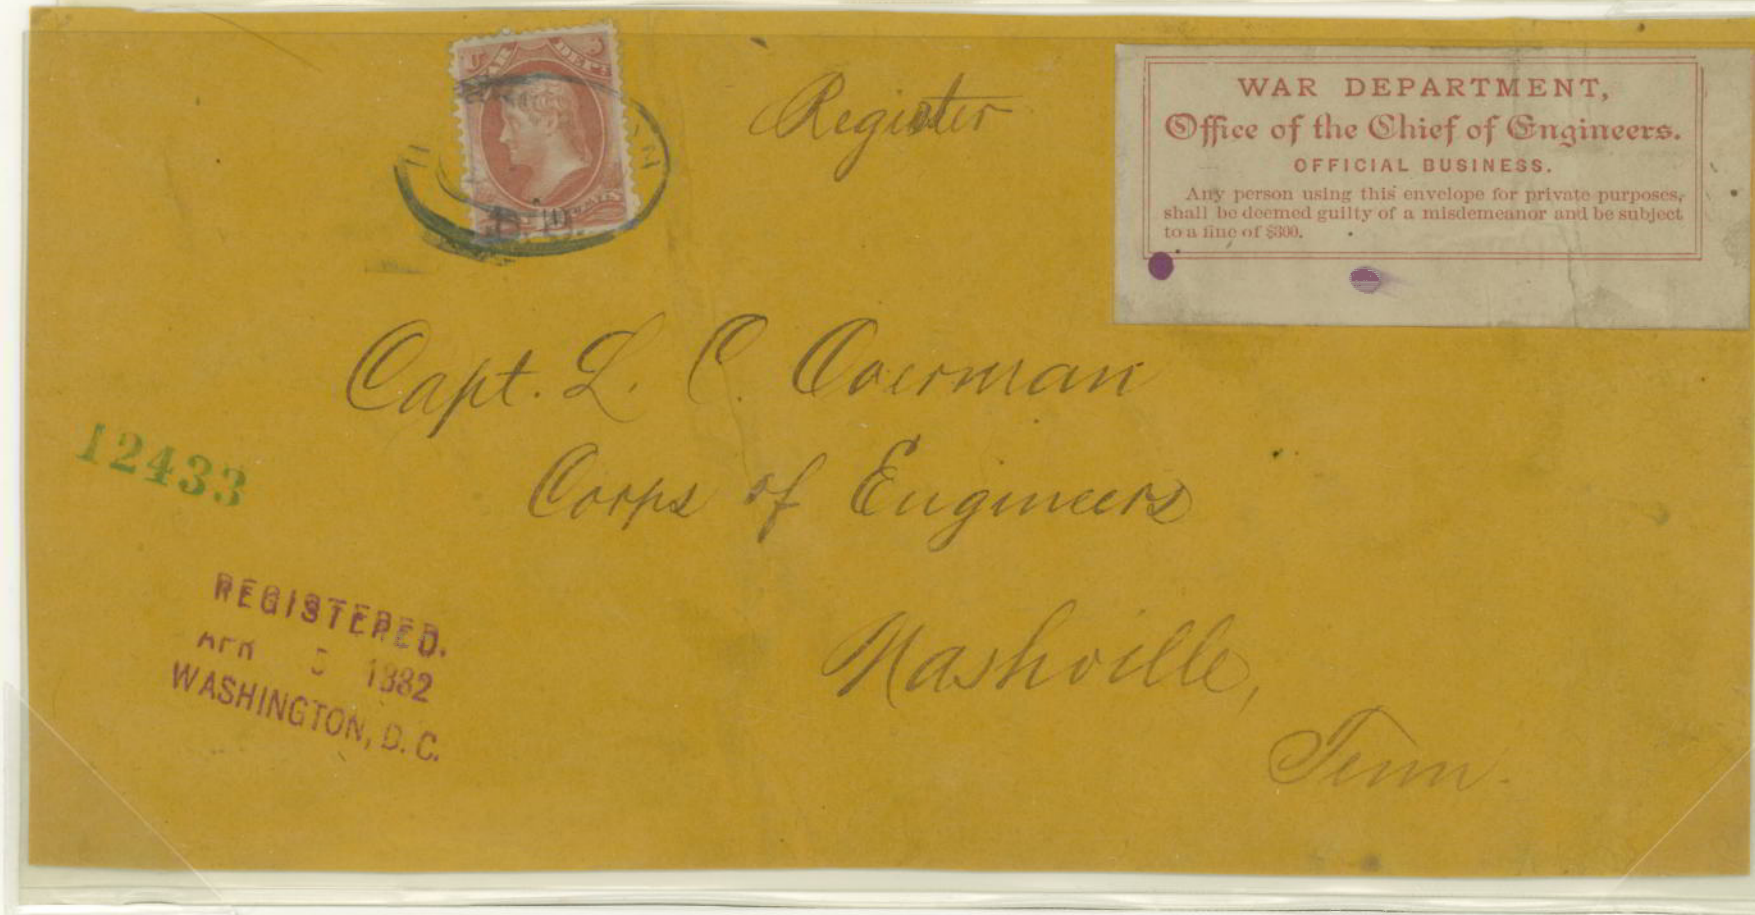 WAR DEPARTMENT,
Office of the Chief of Engineers.
OFFICIAL BUSINESS.
Any person using this envelope for private purposes,
shall be deemed guilty of a misdemeanor and be subject
to a fine of $300.
Register
Capt. L. C. Overman
Corps of Engineers
Nashville,
Tenn.
12433
REGISTERED.
APR 5 1882
WASHINGTON, D. C.